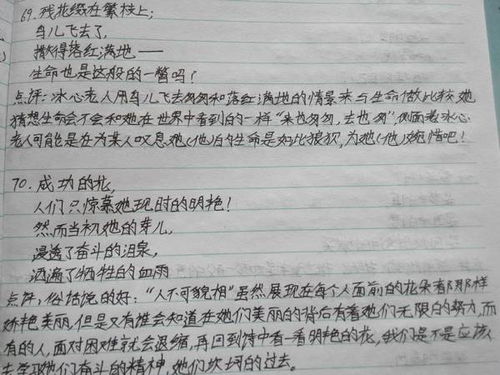 69. 残花缀在繁枝上;
鸟儿飞去了,
撒得落红满地——
生命也是这般的一瞥吗?
点评:冰心老人用鸟儿飞去匆匆和落红满地的情景来与生命做比较,她
猜想生命会不会和她在世界中看到的一样"来也匆匆,去也匆",侧面老冰心
老人可能是在为某人叹息她(他)的生命是如此狼狈,为她(他)惋惜吧!
70. 成功的花,
人们只惊慕她现时的明艳!
然而当初她的芽儿,
浸透了奋斗的泪泉,
洒遍了牺牲的血雨
点评,俗话说的好:"人不可貌相"虽然展现在每个人面前的花朵有那样
娇艳美丽,但是又有谁会知道在她们美丽的背后有着她们无限的努力,而
有的人,面对困难就会退缩,再回到诗中看一看明艳的花,我们是不是应该
去学取她们奋斗的精神,她们坎坷的过去。